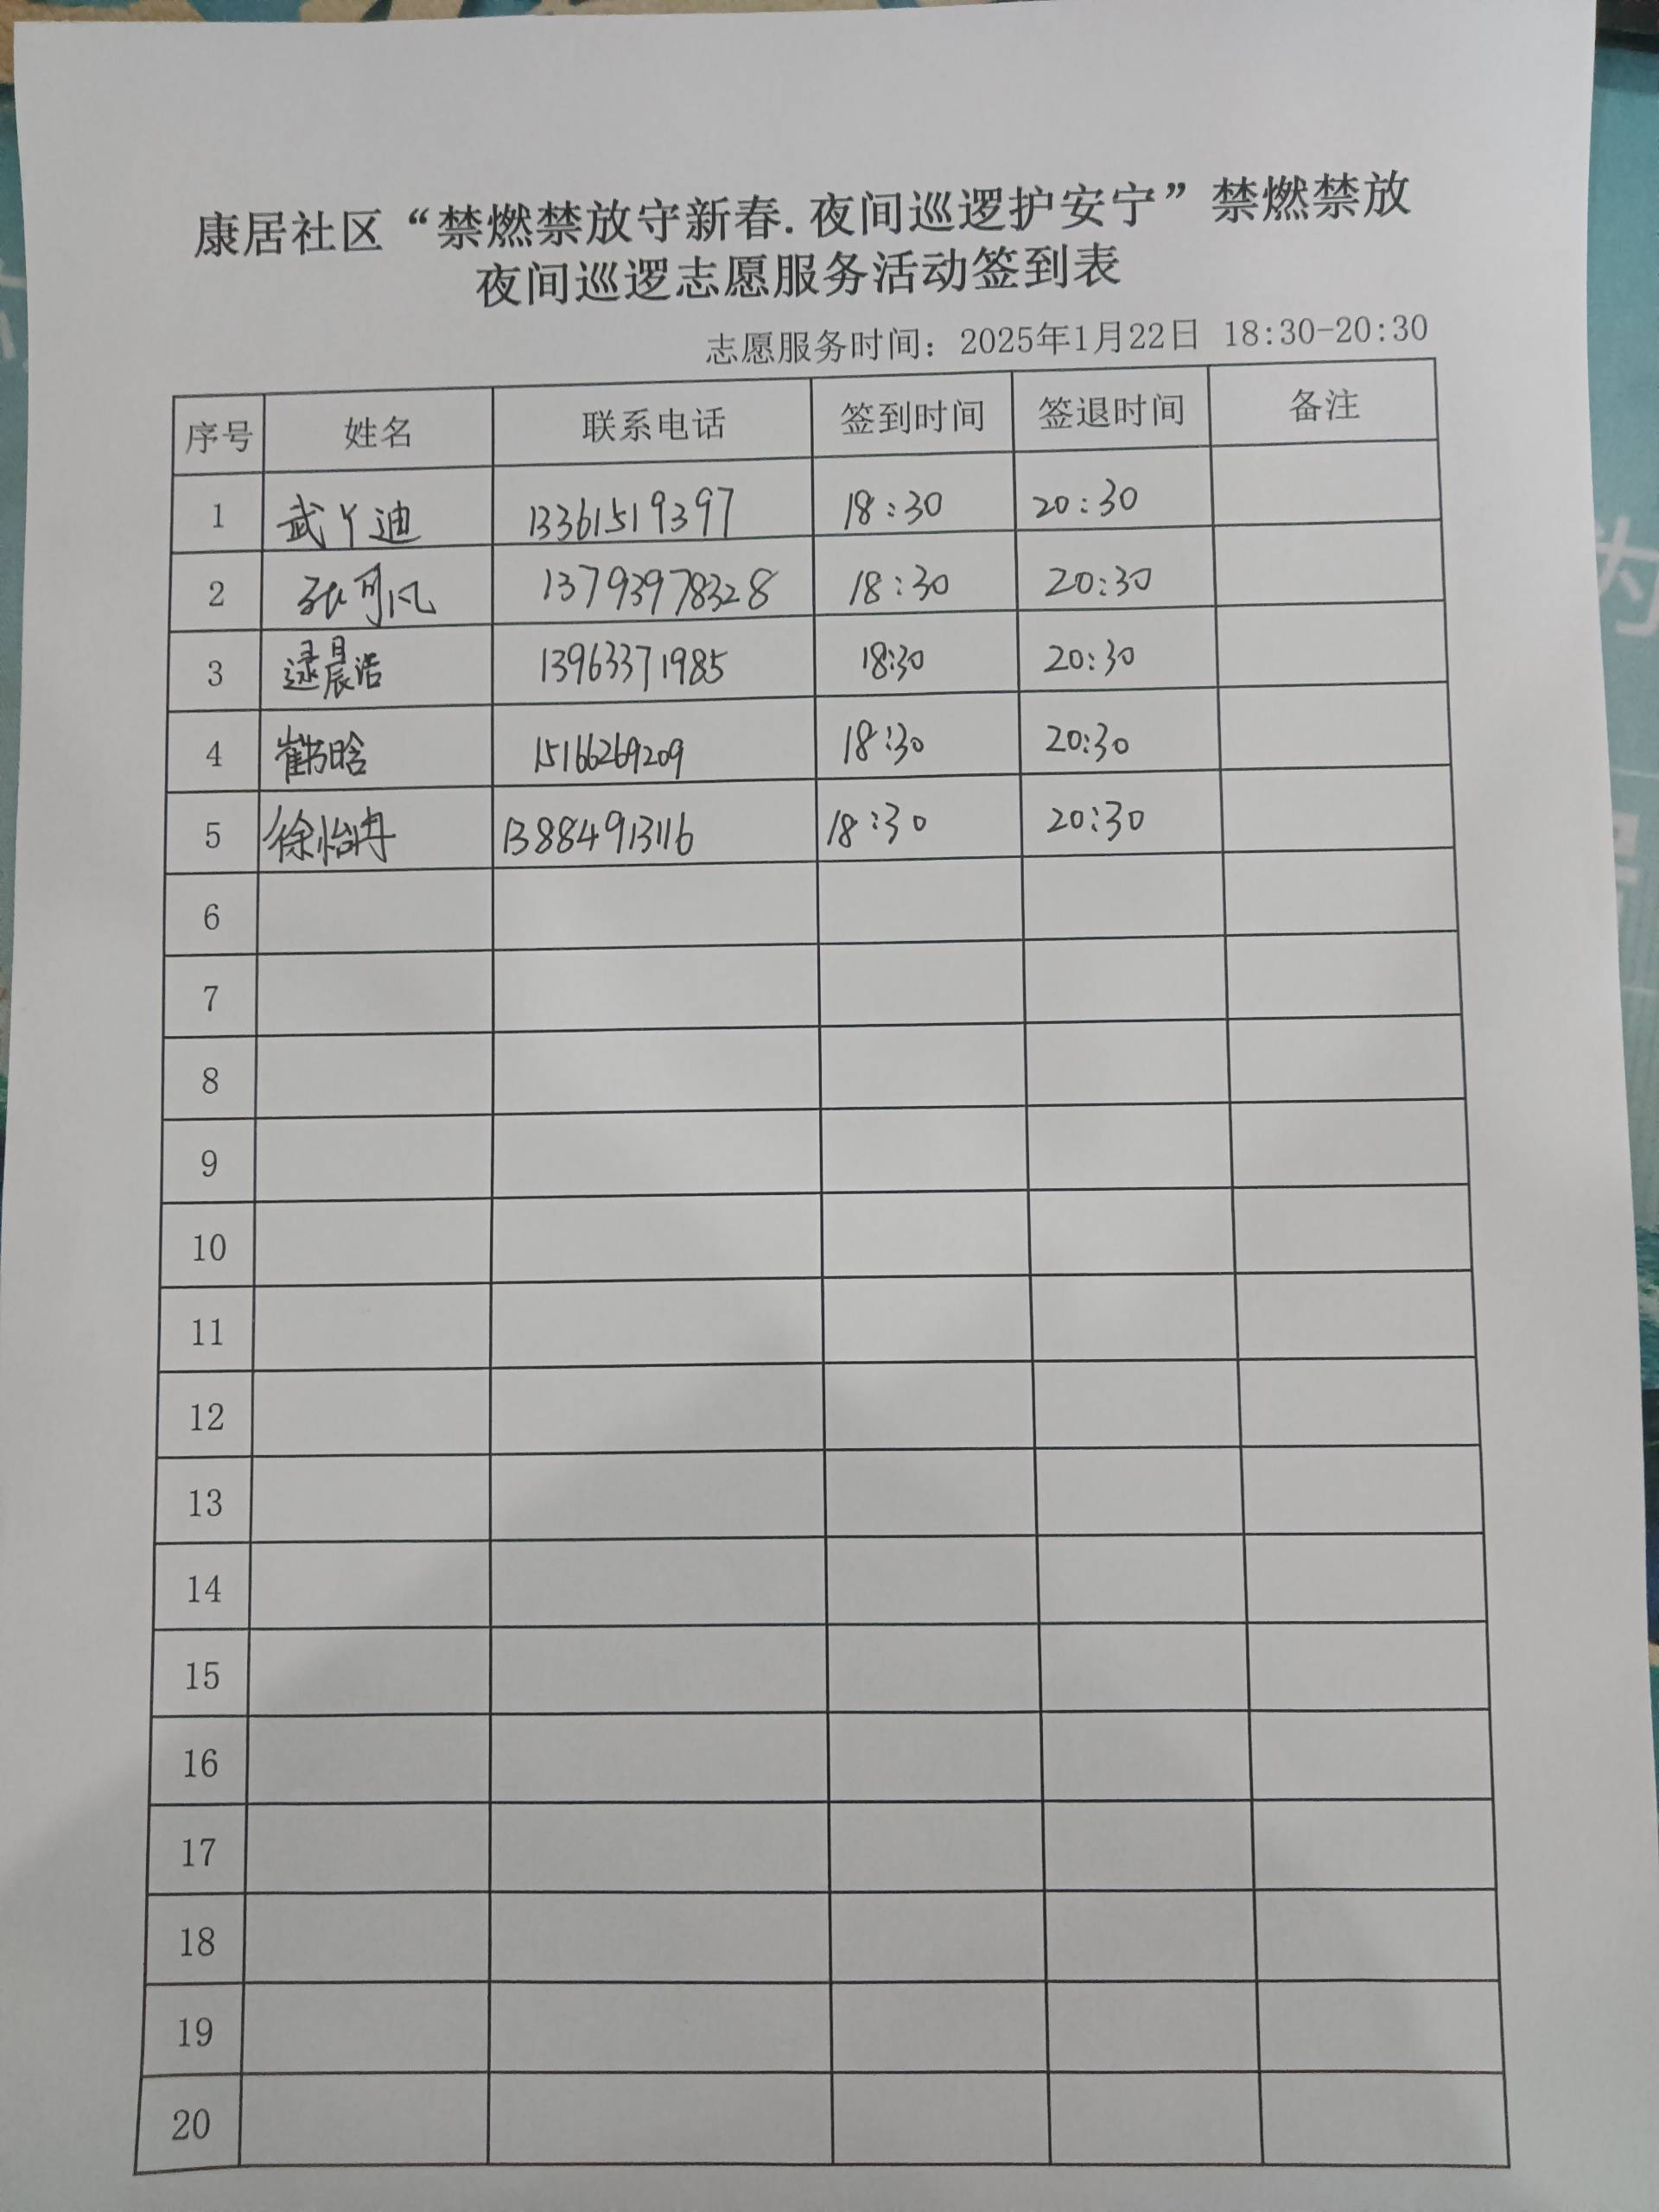 康居社区“禁燃禁放守新春.夜间巡逻护安宁”禁燃禁放
夜间巡逻志愿服务活动签到表
志愿服务时间：2025年1月22日 18:30-20:30
序号 姓名 联系电话 签到时间 签退时间 备注
1 武丫迪 13361519397 18:30 20:30
2 张可凡 13793978328 18:30 20:30
3 逯晨浩 13963371985 18:30 20:30
4 崔书晗 15166269209 18:30 20:30
5 徐怡冉 13884913116 18:30 20:30
6
7
8
9
10
11
12
13
14
15
16
17
18
19
20